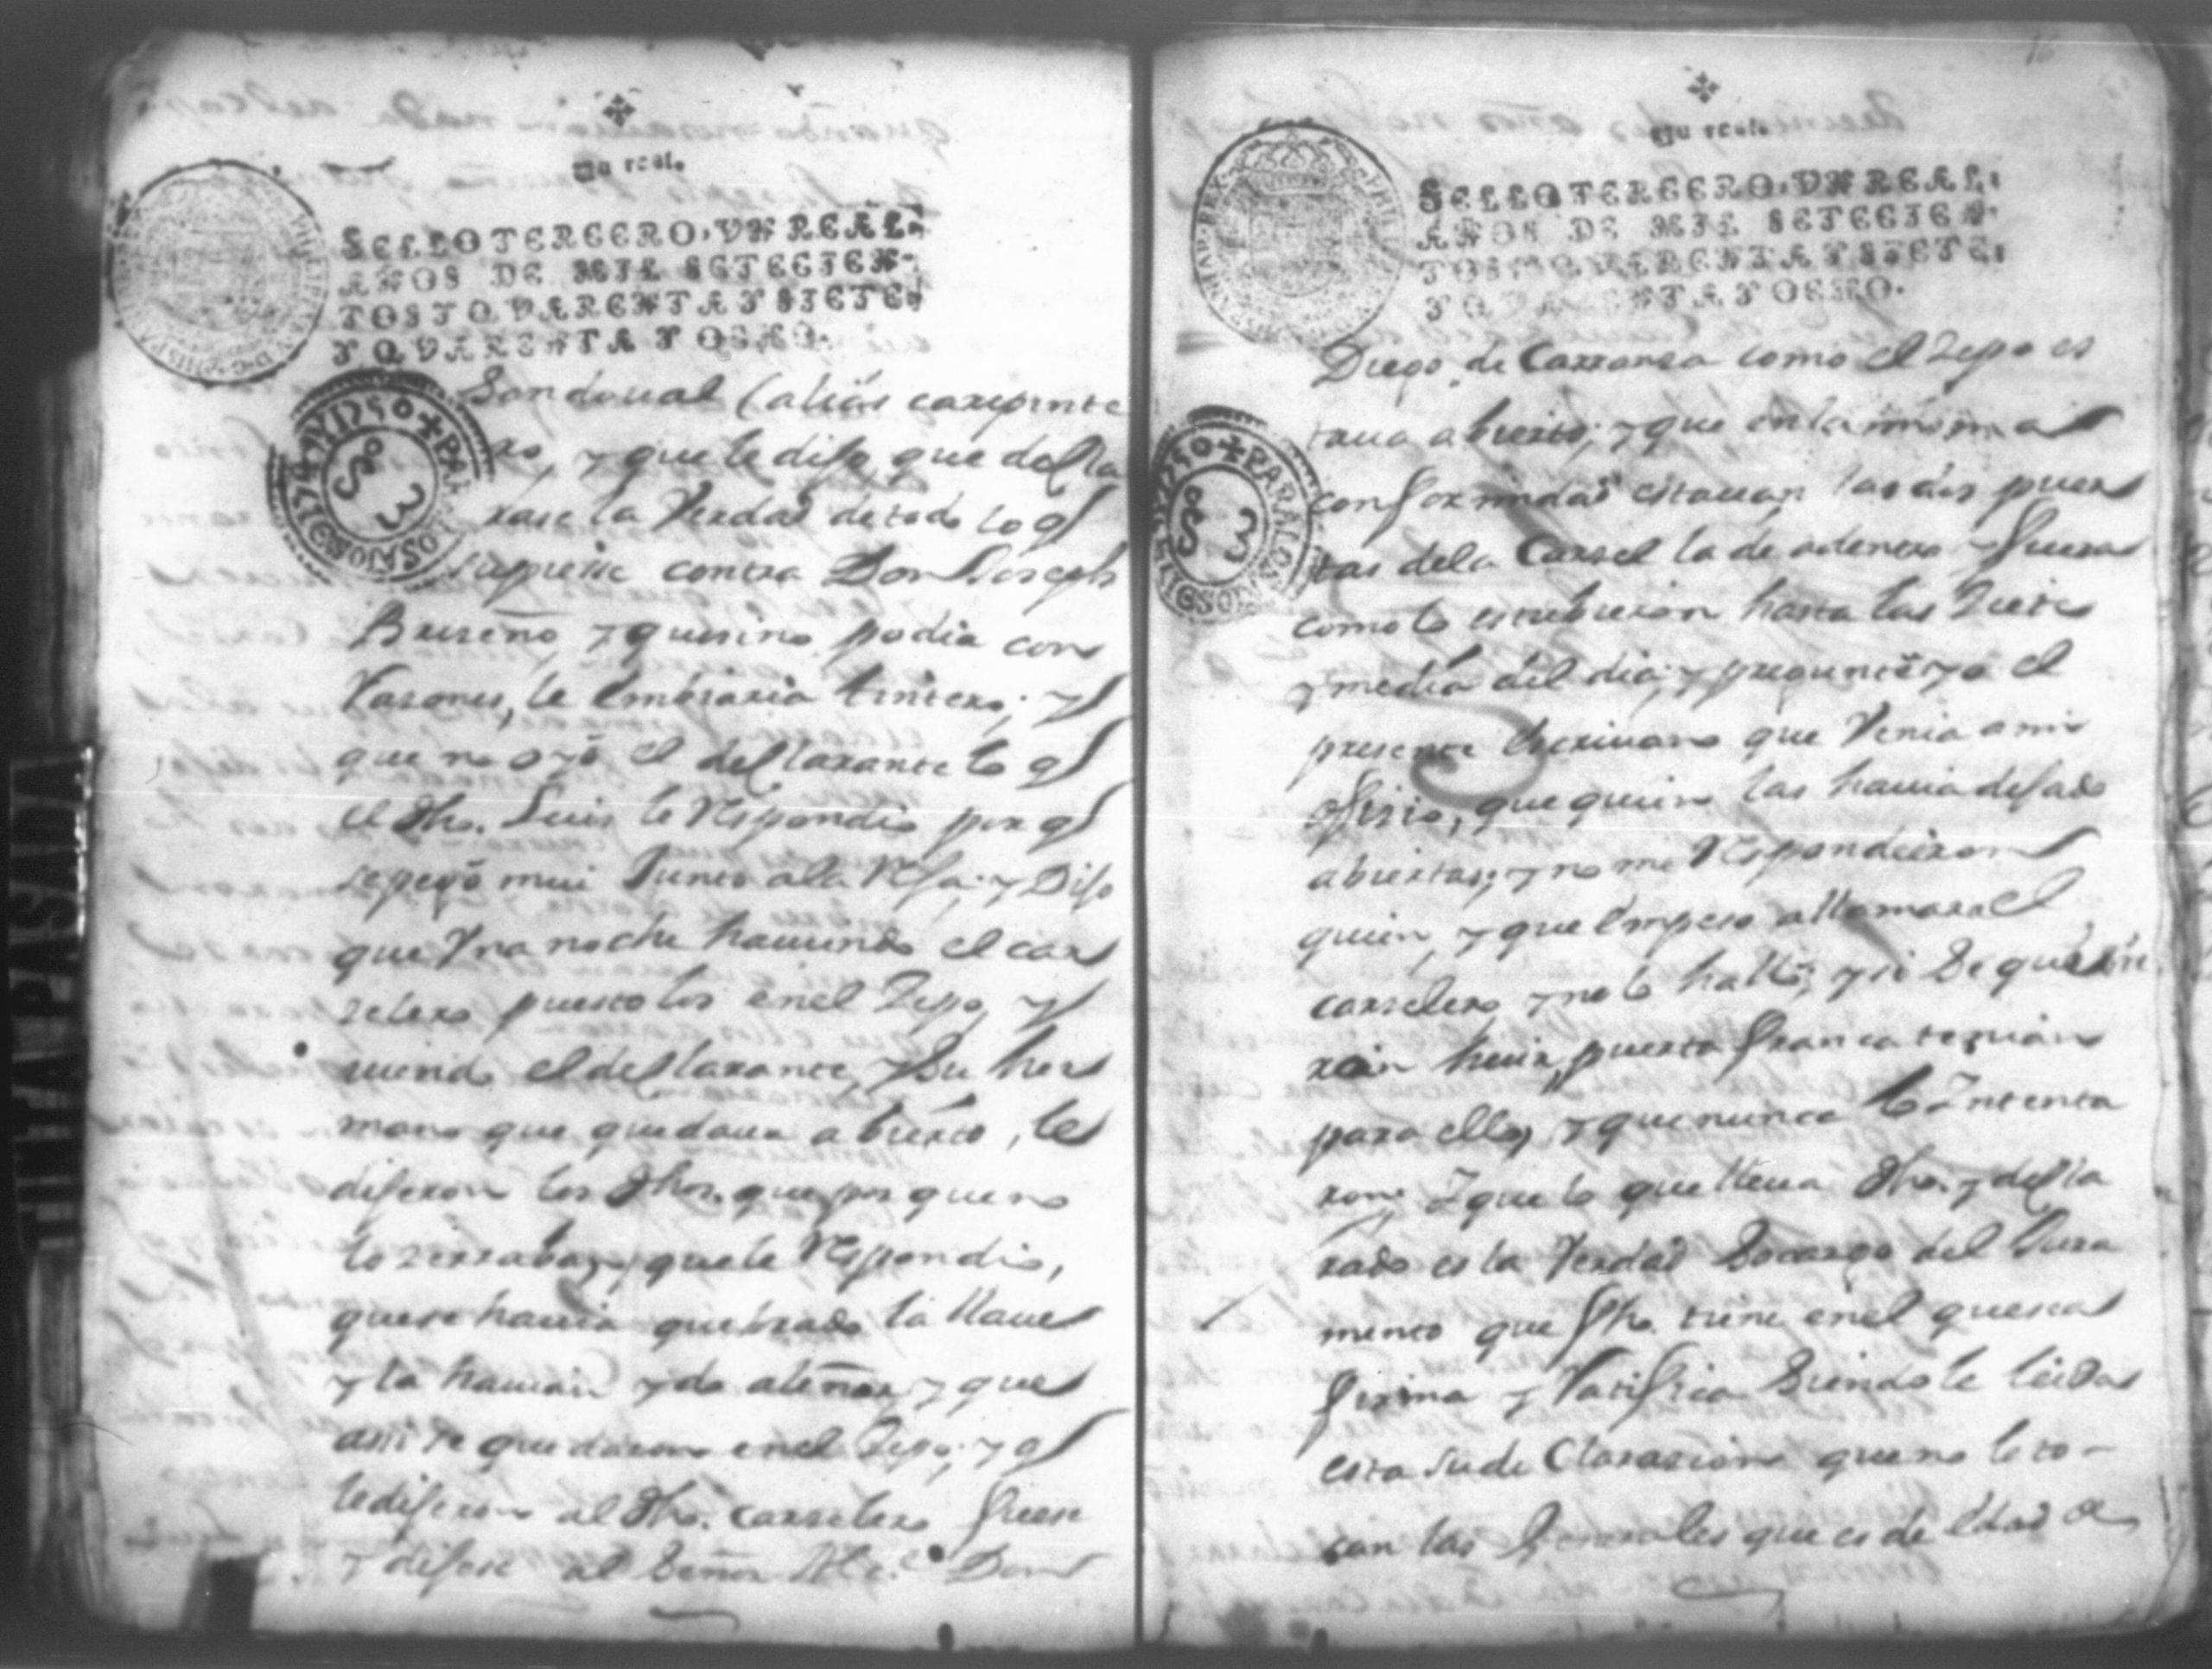 Vn real.
SELLO TERCERO, VN REAL,
AÑOS DE MIL SETECIEN-
TOS Y QVARENTA Y SIETE,
Y QVARENTA Y OCHO.
Sandoual (alias carpinte
ro, y que le dijo que decla
rase la Verdad de todo lo q̃
supiese contra Don Joseph
Briseño y que sino podia con
Varones, le embiaria tintero; y
que no oyó el declarante lo q̃
el dho. Luis le respondio por q̃
se pegó mui Junto a la reja; y Dijo
que Vna noche hauiendo el car
zelero puesto los en el Zepo, y
uiendo el declarante, y Su her
mano que quedaua abierto, le
dijeron los dhos. que por que no
lo zerraban, que le respondio,
que se hauia quebrado la llaue
y la hauian ydo a leñar, y que
assi se quedaron en el Zepo; y q̃
le dijeron al dho. carzelero fuese
y dijese al Señor Alc.e Don
Vn real.
SELLO TERCERO, VN REAL,
AÑOS DE MIL SETECIEN-
TOS Y QVARENTA Y SIETE,
Y QVARENTA Y OCHO.
Diego de Carransa como el Zepo es
taua abierto; y que en la misma
conformidad estauan las dos puer
tas de la Carsel la de adentro y fuera
como lo estubieron hasta las Ziete
y media del dia; y preguntó yo el
presente escriuano que Venia a mi
ofizio, que quien las hauia dejado
abiertas; y no me respondieron
quien, y que empeso a llamar a el
carselero y no lo halló; y si Se quisie
ran huir, puerta franca tenian
para ello, y que nunca lo Intenta
ron; Y que lo que lleua dho. y decla
rado es la Verdad Socargo del Jura
mento que fho. tiene en el que se a
firma y ratifica Siendole leidas
esta su de Clarazion que no le to-
can las Generales que es de edad de